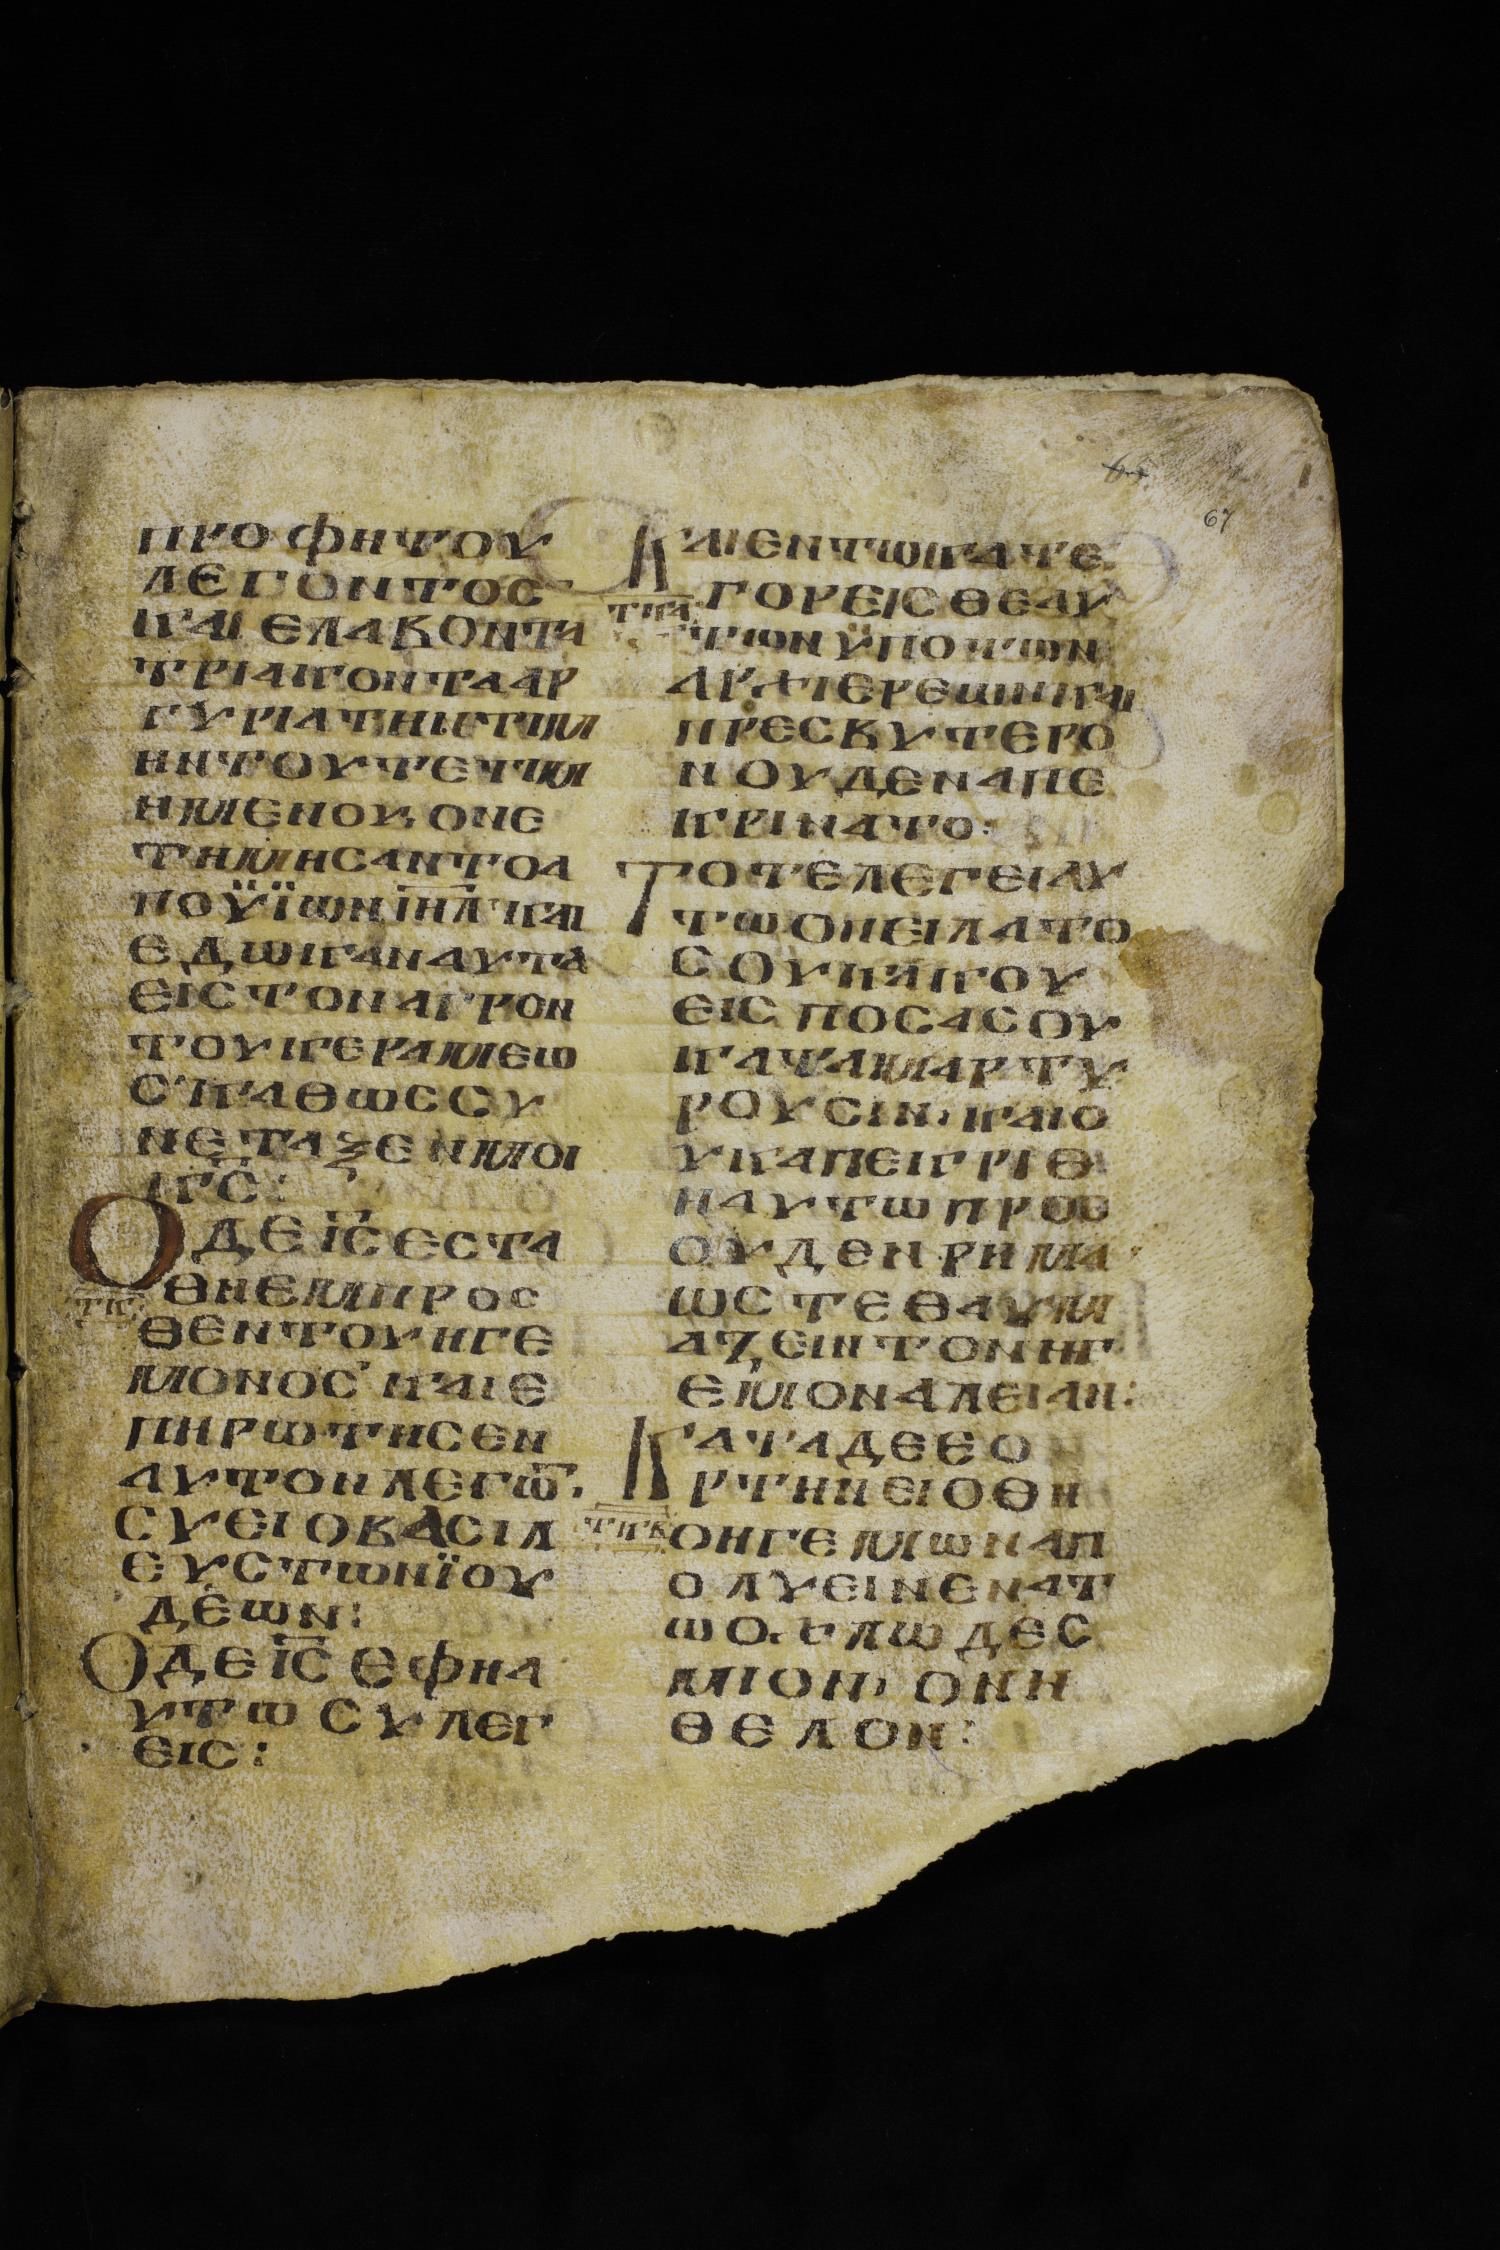 67
ΠΡΟΦΗΤΟΥ
ΛΕΓΟΝΤΟΣ
ΚΑΙ ΕΛΑΒΟΝΤΑ
ΤΡΙΑΚΟΝΤΑ ΑΡ
ΓΥΡΙΑ ΤΗΝ ΕΤΙΜ
ΗΝ ΤΟΥ ΤΕΤΙΜ
ΗΜΕΝΟΥ, ΟΝ Ε
ΤΗΜΗΣΑΝΤΟ Α
ΠΟ Ϋ̈ΪΩΝ Ι̅Η̅Λ̅ ΚΑΙ
ΕΔΩΚΑΝ ΑΥΤΑ
ΕΙΣ ΤΟΝ ΑΓΡΟΝ
ΤΟΥ ΚΕΡΑΜΕΩ
Σ' ΚΑΘΩΣ ΣΥ
ΝΕΤΑΞΕΝ ΜΟΙ
Κ̅Σ̅:
Ο ΔΕ Ι̅Σ̅ ΕΣΤΑ
ΘΗ ΕΜΠΡΟΣ
Τ̅Κ̅
ΘΕΝ ΤΟΥ ΗΓΕ
ΜΟΝΟΣ' ΚΑΙ Ε
ΠΗΡΩΤΗΣΕΝ
ΑΥΤΟΝ ΛΕΓΩ̅.
ΣΥ ΕΙ Ο ΒΑΣΙΛ
ΕΥΣ ΤΩΝ ΪΟΥ
ΔΕΩΝ:
Ο ΔΕ Ι̅Σ̅ ΕΦΗ Α
ΥΤΩ ΣΥ ΛΕΓ
ΕΙΣ:
ΚΑΙ ΕΝ ΤΩ ΚΑΤΕ
ΓΟΡΕΙΣΘΕ ΑΥ
Τ̅Κ̅Α̅
ΤΩΝ ΫΠΟ ΤΩΝ
ΑΡΧΙΕΡΕΩΝ ΚΑΙ
ΠΡΕΣΒΥΤΕΡΟ
Ν ΟΥΔΕΝ ΑΠΕ
ΚΡΙΝΑΤΟ:
ΤΟΤΕ ΛΕΓΕΙ ΑΥ
ΤΩ Ο ΠΕΙΛΑΤΟ
Σ ΟΥΚ ΑΚΟΥ
ΕΙΣ ΠΟΣΑ ΣΟΥ
ΚΑΤΑΜΑΡΤΥ
ΡΟΥΣΙΝ, ΚΑΙ Ο
ΥΚ ΑΠΕΙΚΡΙΘ
Η ΑΥΤΩ ΠΡΟΣ
ΟΥΔΕΝ ΡΗΜΑ
ΩΣΤΕ ΘΑΥΜ
ΑΖΕΙΝ ΤΟΝ ΗΓ
ΕΜΟΝΑ ΛΕΙΑΝ:
ΚΑΤΑ ΔΕ ΕΟ
ΡΤΗΝ ΕΙΟΘΗ
Τ̅Κ̅Β̅
Ο ΗΓΕΜΩΝ ΑΠ
ΟΛΥΕΙΝ ΕΝΑ Τ
Ω ΟΧΛΩ ΔΕΣ
ΜΙΟΝ, ΟΝ Η
ΘΕΛΟΝ: